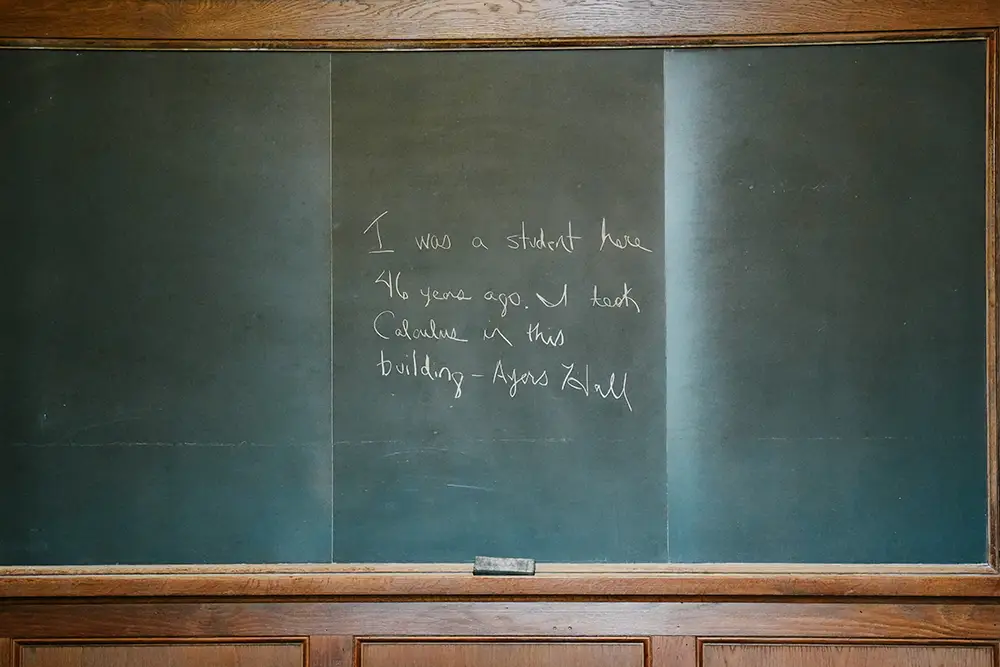 I was a student here
46 years ago. I took
Calculus in this
building - Ayers Hall